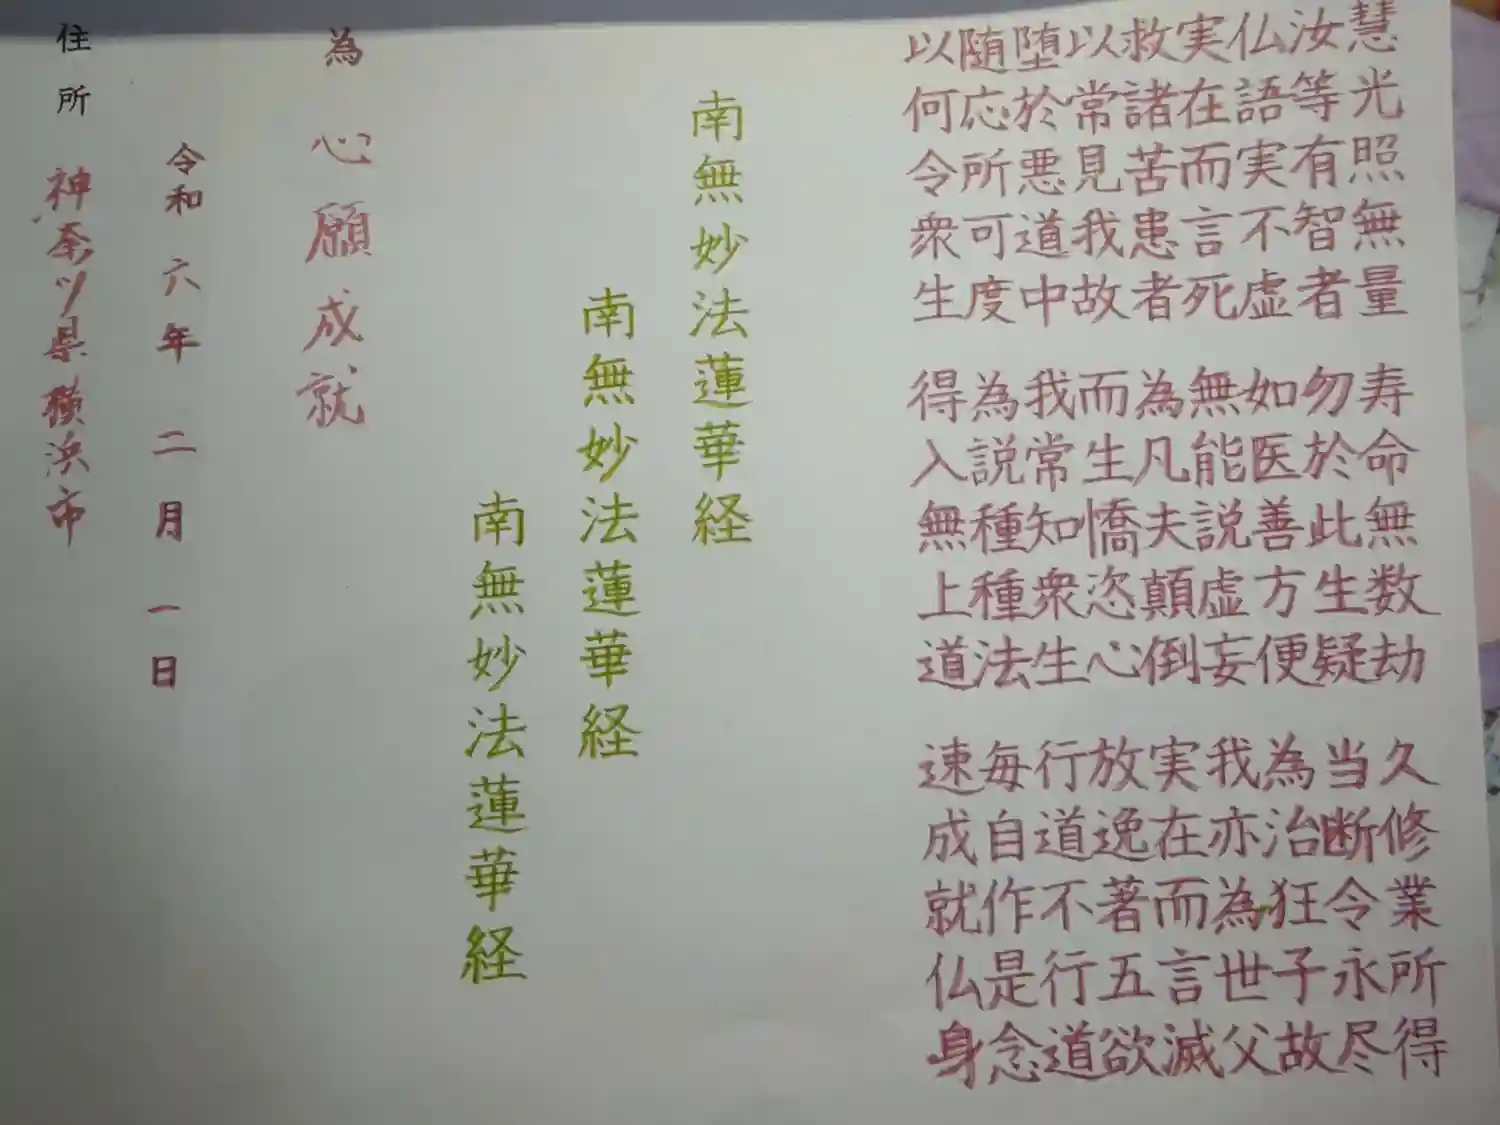 慧光照無量 寿命無数劫 久修業所得
汝等有智者 勿於此生疑 当断令永尽
仏語実不虚 如医善方便 為治狂子故
実在而言死 無能説虚妄 我亦為世父
救諸苦患者 為凡夫顛倒 実在而言滅
以常見我故 而生憍恣心 放逸著五欲
堕於悪道中 我常知衆生 行道不行道
随応所可度 為説種種法 毎自作是念
以何令衆生 得入無上道 速成就仏身
南無妙法蓮華経
南無妙法蓮華経
南無妙法蓮華経
為 心願成就
令和六年二月一日
住所 神奈ツ県横浜市